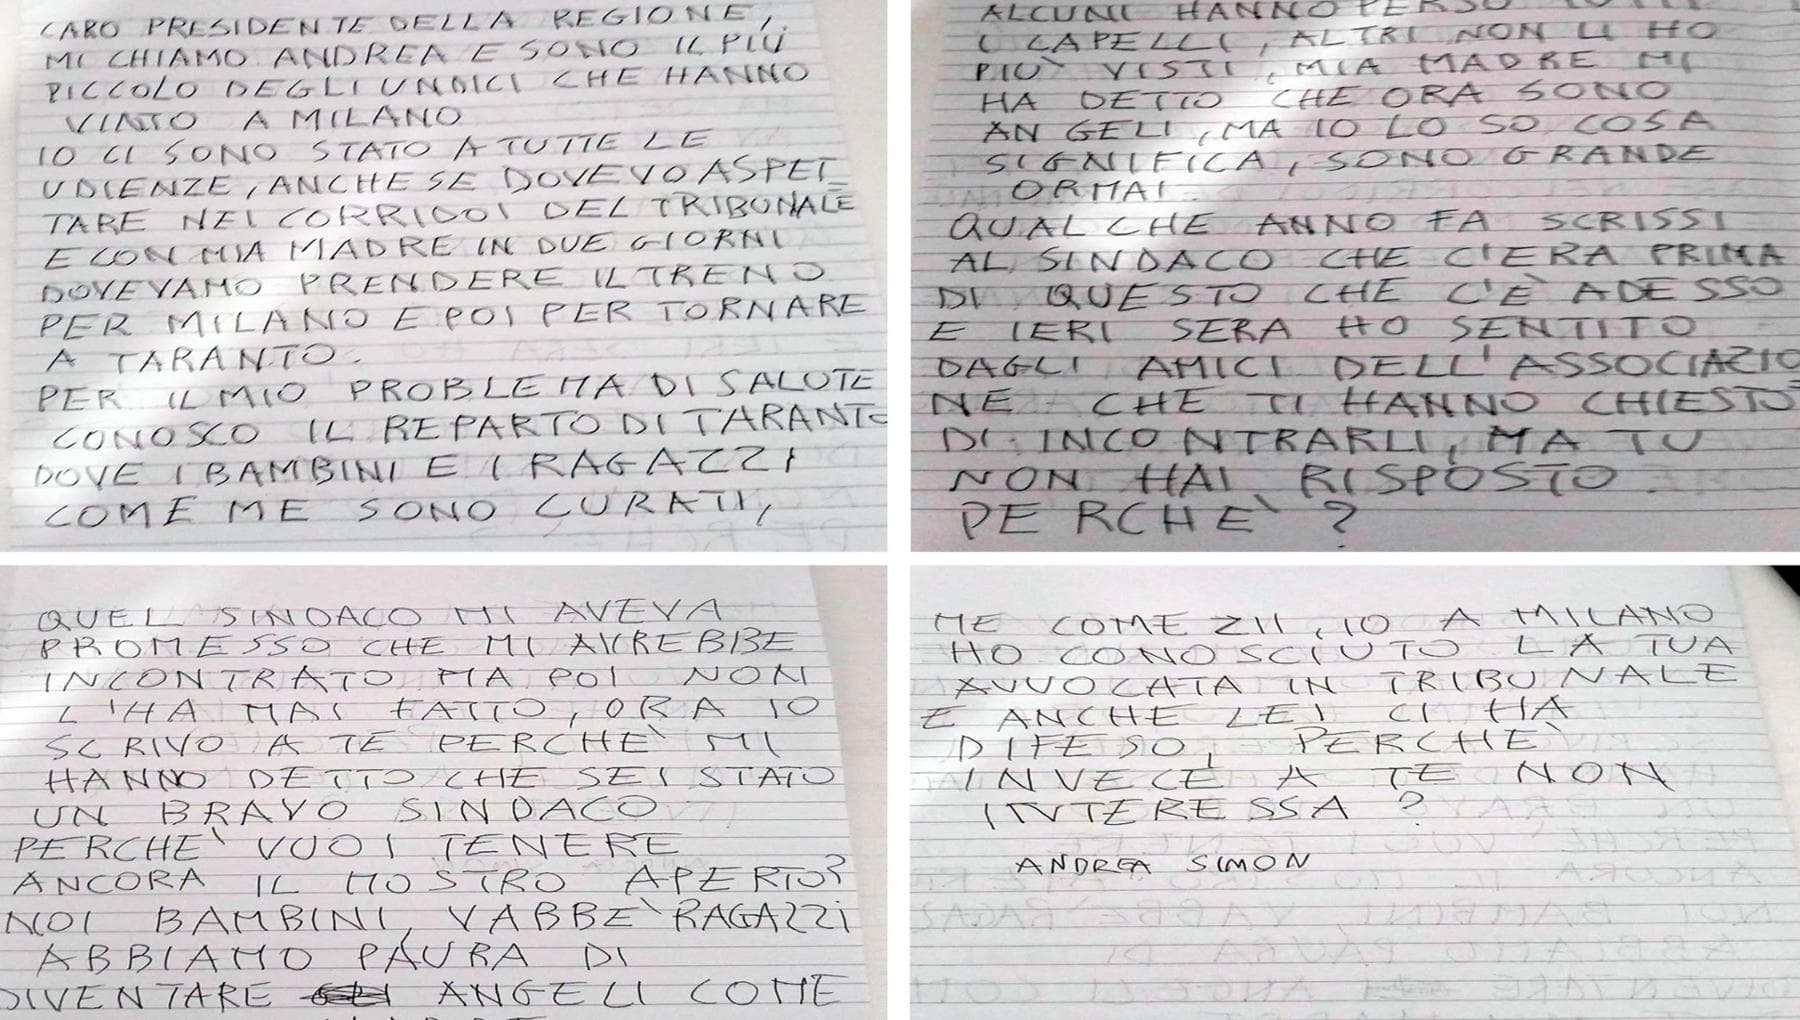 CARO PRESIDENTE DELLA REGIONE,
MI CHIAMO ANDREA E SONO IL PIÙ
PICCOLO DEGLI UNDICI CHE HANNO
VINTO A MILANO
IO CI SONO STATO A TUTTE LE
UDIENZE, ANCHE SE DOVEVO ASPET_
TARE NEI CORRIDOI DEL TRIBUNALE
E CON MIA MADRE IN DUE GIORNI
DOVEVAMO PRENDERE IL TRENO
PER MILANO E POI PER TORNARE
A TARANTO.
PER IL MIO PROBLEMA DI SALUTE
CONOSCO IL REPARTO DI TARANTO
DOVE I BAMBINI E I RAGAZZI
COME ME SONO CURATI,
ALCUNI HANNO PERSO TUTTI
I CAPELLI, ALTRI NON LI HO
PIÙ VISTI, MIA MADRE MI
HA DETTO CHE ORA SONO
ANGELI, MA IO LO SO COSA
SIGNIFICA, SONO GRANDE
ORMAI.
QUALCHE ANNO FA SCRISSI
AL SINDACO CHE C'ERA PRIMA
DI QUESTO CHE C'È ADESSO
E IERI SERA HO SENTITO
DAGLI AMICI DELL'ASSOCIAZIO
NE CHE TI HANNO CHIESTO
DI INCONTRARLI, MA TU
NON HAI RISPOSTO.
PERCHÈ?
QUEL SINDACO MI AVEVA
PROMESSO CHE MI AVREBBE
INCONTRATO MA POI NON
L'HA MAI FATTO, ORA IO
SCRIVO A TE PERCHÈ MI
HANNO DETTO CHE SEI STATO
UN BRAVO SINDACO
PERCHÈ VUOI TENERE
ANCORA IL MOSTRO APERTO?
NOI BAMBINI, VABBÈ RAGAZZI
ABBIAMO PAURA DI
DIVENTARE ANGELI COME
ME COME ZII, IO A MILANO
HO CONOSCIUTO LA TUA
AVVOCATA IN TRIBUNALE
E ANCHE LEI CI HA
DIFESO, PERCHÈ
INVECE A TE NON
INTERESSA?
ANDREA SIMON